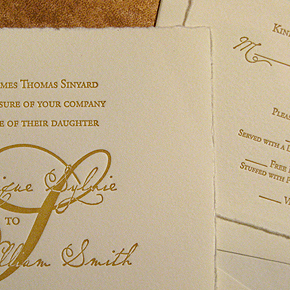 James Thomas Sinyard
sure of your company
e of their daughter
ique Sylvie
to
lliam Smith
Kin
M
Pleas
Served with a
Free
Stuffed with
V